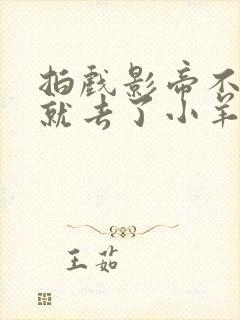 拍戏影帝不
就去了小羊
王茹